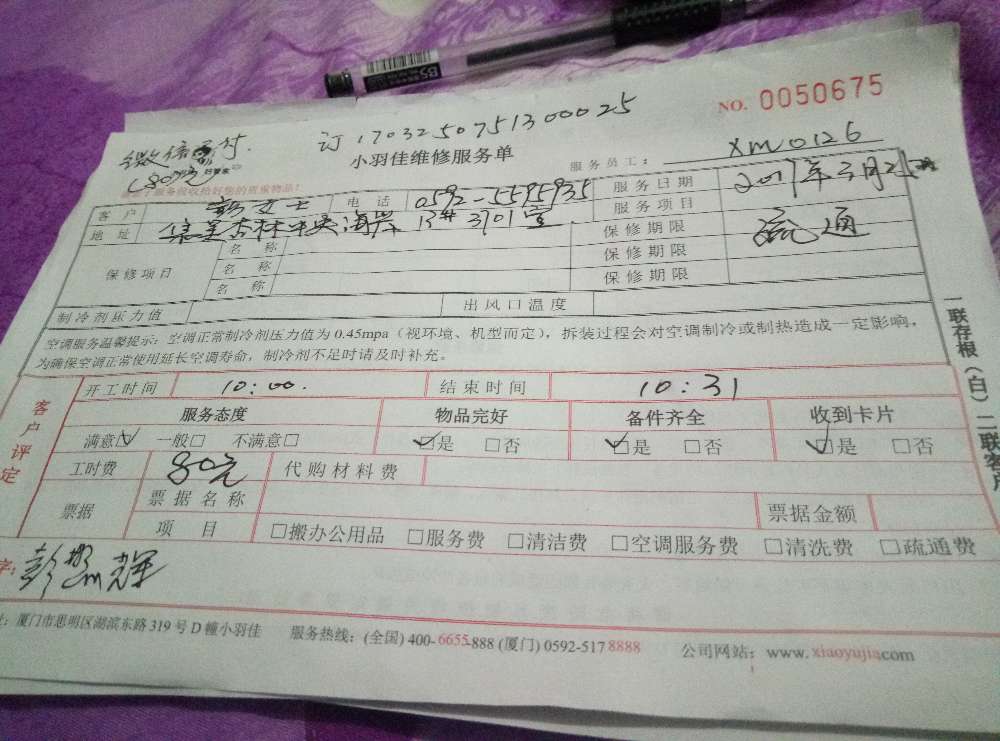 NO. 0050675
订 17032507513000025
微信支付
小羽佳维修服务单
服务员工: XM0126
客户 彭女士 电话 0592-5595935 服务日期 2017年3月
地址 集美杏林中央海岸 13# 3701室 服务项目 疏通
保修项目 名称 保修期限
名称 保修期限
名称 保修期限
制冷剂压力值 出风口温度
空调服务温馨提示: 空调正常制冷剂压力值为 0.45mpa（视环境、机型而定），拆装过程会对空调制冷或制热造成一定影响，
为确保空调正常使用延长空调寿命，制冷剂不足时请及时补充。
客户评定
开工时间 10:00. 结束时间 10:31
服务态度 物品完好 备件齐全 收到卡片
满意☑ 一般□ 不满意□ ☑是 □否 ☑是 □否 ☑是 □否
工时费 80元 代购材料费
票据 票据名称 票据金额
项目 □搬办公用品 □服务费 □清洁费 □空调服务费 □清洗费 □疏通费
厦门市思明区湖滨东路 319 号 D 幢小羽佳 服务热线: (全国) 400-6655-888 (厦门) 0592-5178888 公司网站: www.xiaoyujia.com
一联存根（白）二联客户